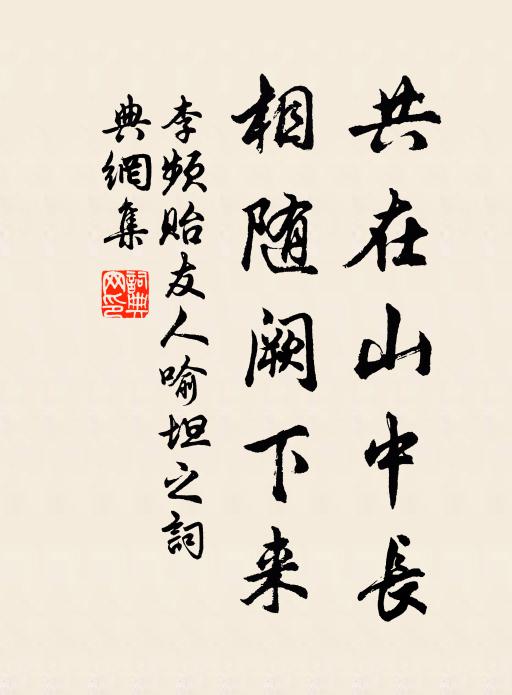 共在山中長
相随闕下来
李频贻友人喻坦之詞
典網集
詞典
网印